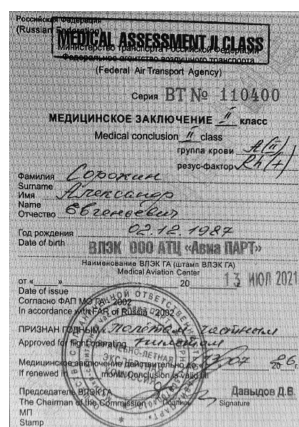 Российская Федерация
(Russian
MEDICAL ASSESSMENT II CLASS
Министерство транспорта Российской Федерации
Федеральное агентство воздушного транспорта
(Federal Air Transport Agency)
Серия ВТ № 110400
МЕДИЦИНСКОЕ ЗАКЛЮЧЕНИЕ II класс
Medical conclusion II class
группа крови A(II)
резус-фактор Rh(+)
Фамилия Сорокин
Surname
Имя Александр
Name
Отчество Евгеньевич
Год рождения 02.12.1987
Date of birth
ВЛЭК ООО АТЦ «Авиа ПАРТ»
Наименование ВЛЭК ГА (штамп ВЛЭК ГА)
Medical Aviation Center
от « » 20 13 ИЮЛ 2021
Date of issue
Согласно ФАП МО ГА - 2002
In accordance with FAR of Russia - 2002
ПРИЗНАН ГОДНЫМ к полётам частным
Approved for flight operating пилотом
Медицинское заключение действительно до
If renewed in
Председатель ВЛЭК ГА Давыдов Д.В.
The Chairman of the Commission Signature
МП
Stamp